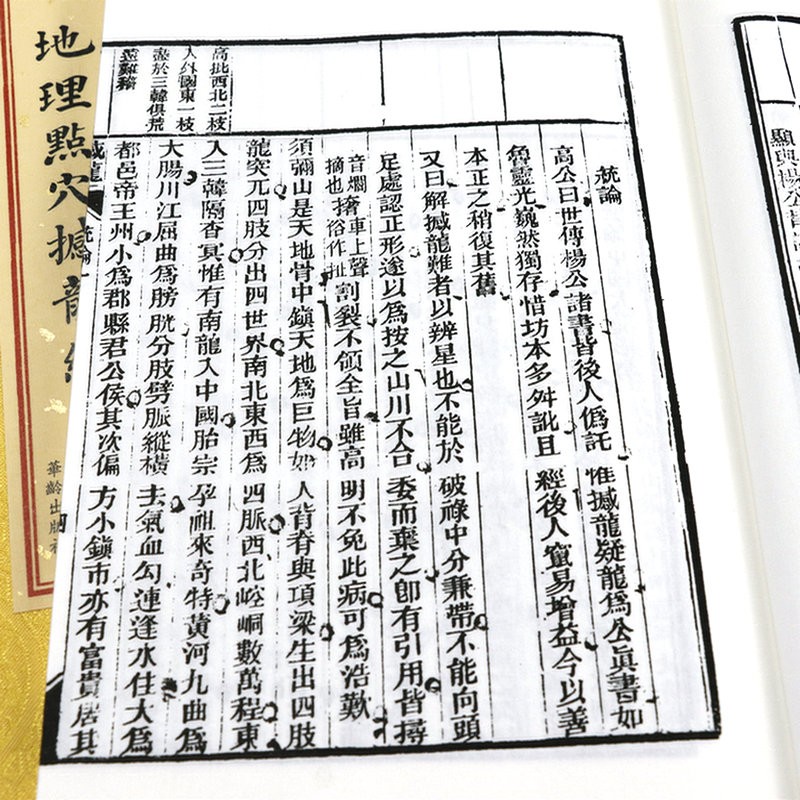 顯與楊公
高批西北二枝
入外國東一枝
盡於三韓俱荒
遠難稽
統論
高公曰世傳楊公諸書皆後人僞託惟撼龍疑龍爲公眞書如
魯靈光巍然獨存惜坊本多舛訛且經後人竄易增益今以善
本正之稍復其舊
又曰解撼龍難者以辨星也不能於破祿中分兼帶不能向頭
足處認正形遂以爲按之山川不合委而棄之卽有引用皆撏
音爓撦車上聲
摘也俗作扯
割裂不領全旨雖高明不免此病可爲浩歎
須彌山是天地骨中鎮天地爲巨物如人背脊與項梁生出四肢
龍突兀四肢分出四世界南北東西爲四脈西北崆峒數萬程東
入三韓隔杳冥惟有南龍入中國胎宗孕祖來奇特黃河九曲爲
大腸川江屈曲爲膀胱分肢劈脈縱橫去氣血勾連逢水住大爲
都邑帝王州小爲郡縣君公侯其次偏方小鎮市亦有富貴居其
撼龍 統論 一
地理點穴撼龍經
華齡出版社